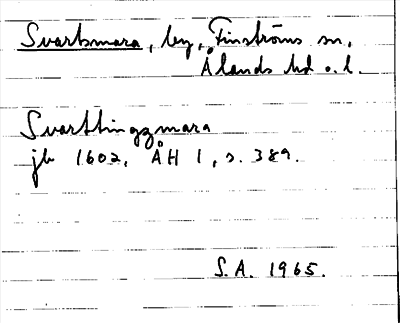 Svartsmara, by, Finströms sn,
Ålands hd o. l.
Svarttingzmara
jb 1602, ÅH 1, s. 389.
S.A. 1965.